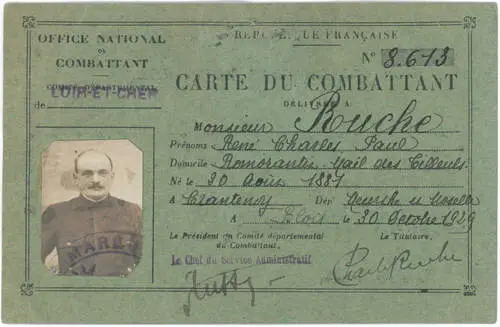 OFFICE NATIONAL
DU
COMBATTANT
COMITÉ DÉPARTEMENTAL
de LOIR-ET-CHER
RÉPUBLIQUE FRANÇAISE
N° 8.613
CARTE DU COMBATTANT
DÉLIVRÉE A
Monsieur Ruche
Prénoms René Charles Paul
Domicile Romorantin, Mail des Tilleuls
Né le 30 Août 1887
A Dépt Meurthe et Moselle
A Blois le 30 Octobre 1929
Le Président du Comité départemental
du Combattant,
Le Titulaire,
Le Chef du Service Administratif
Charles Ruche